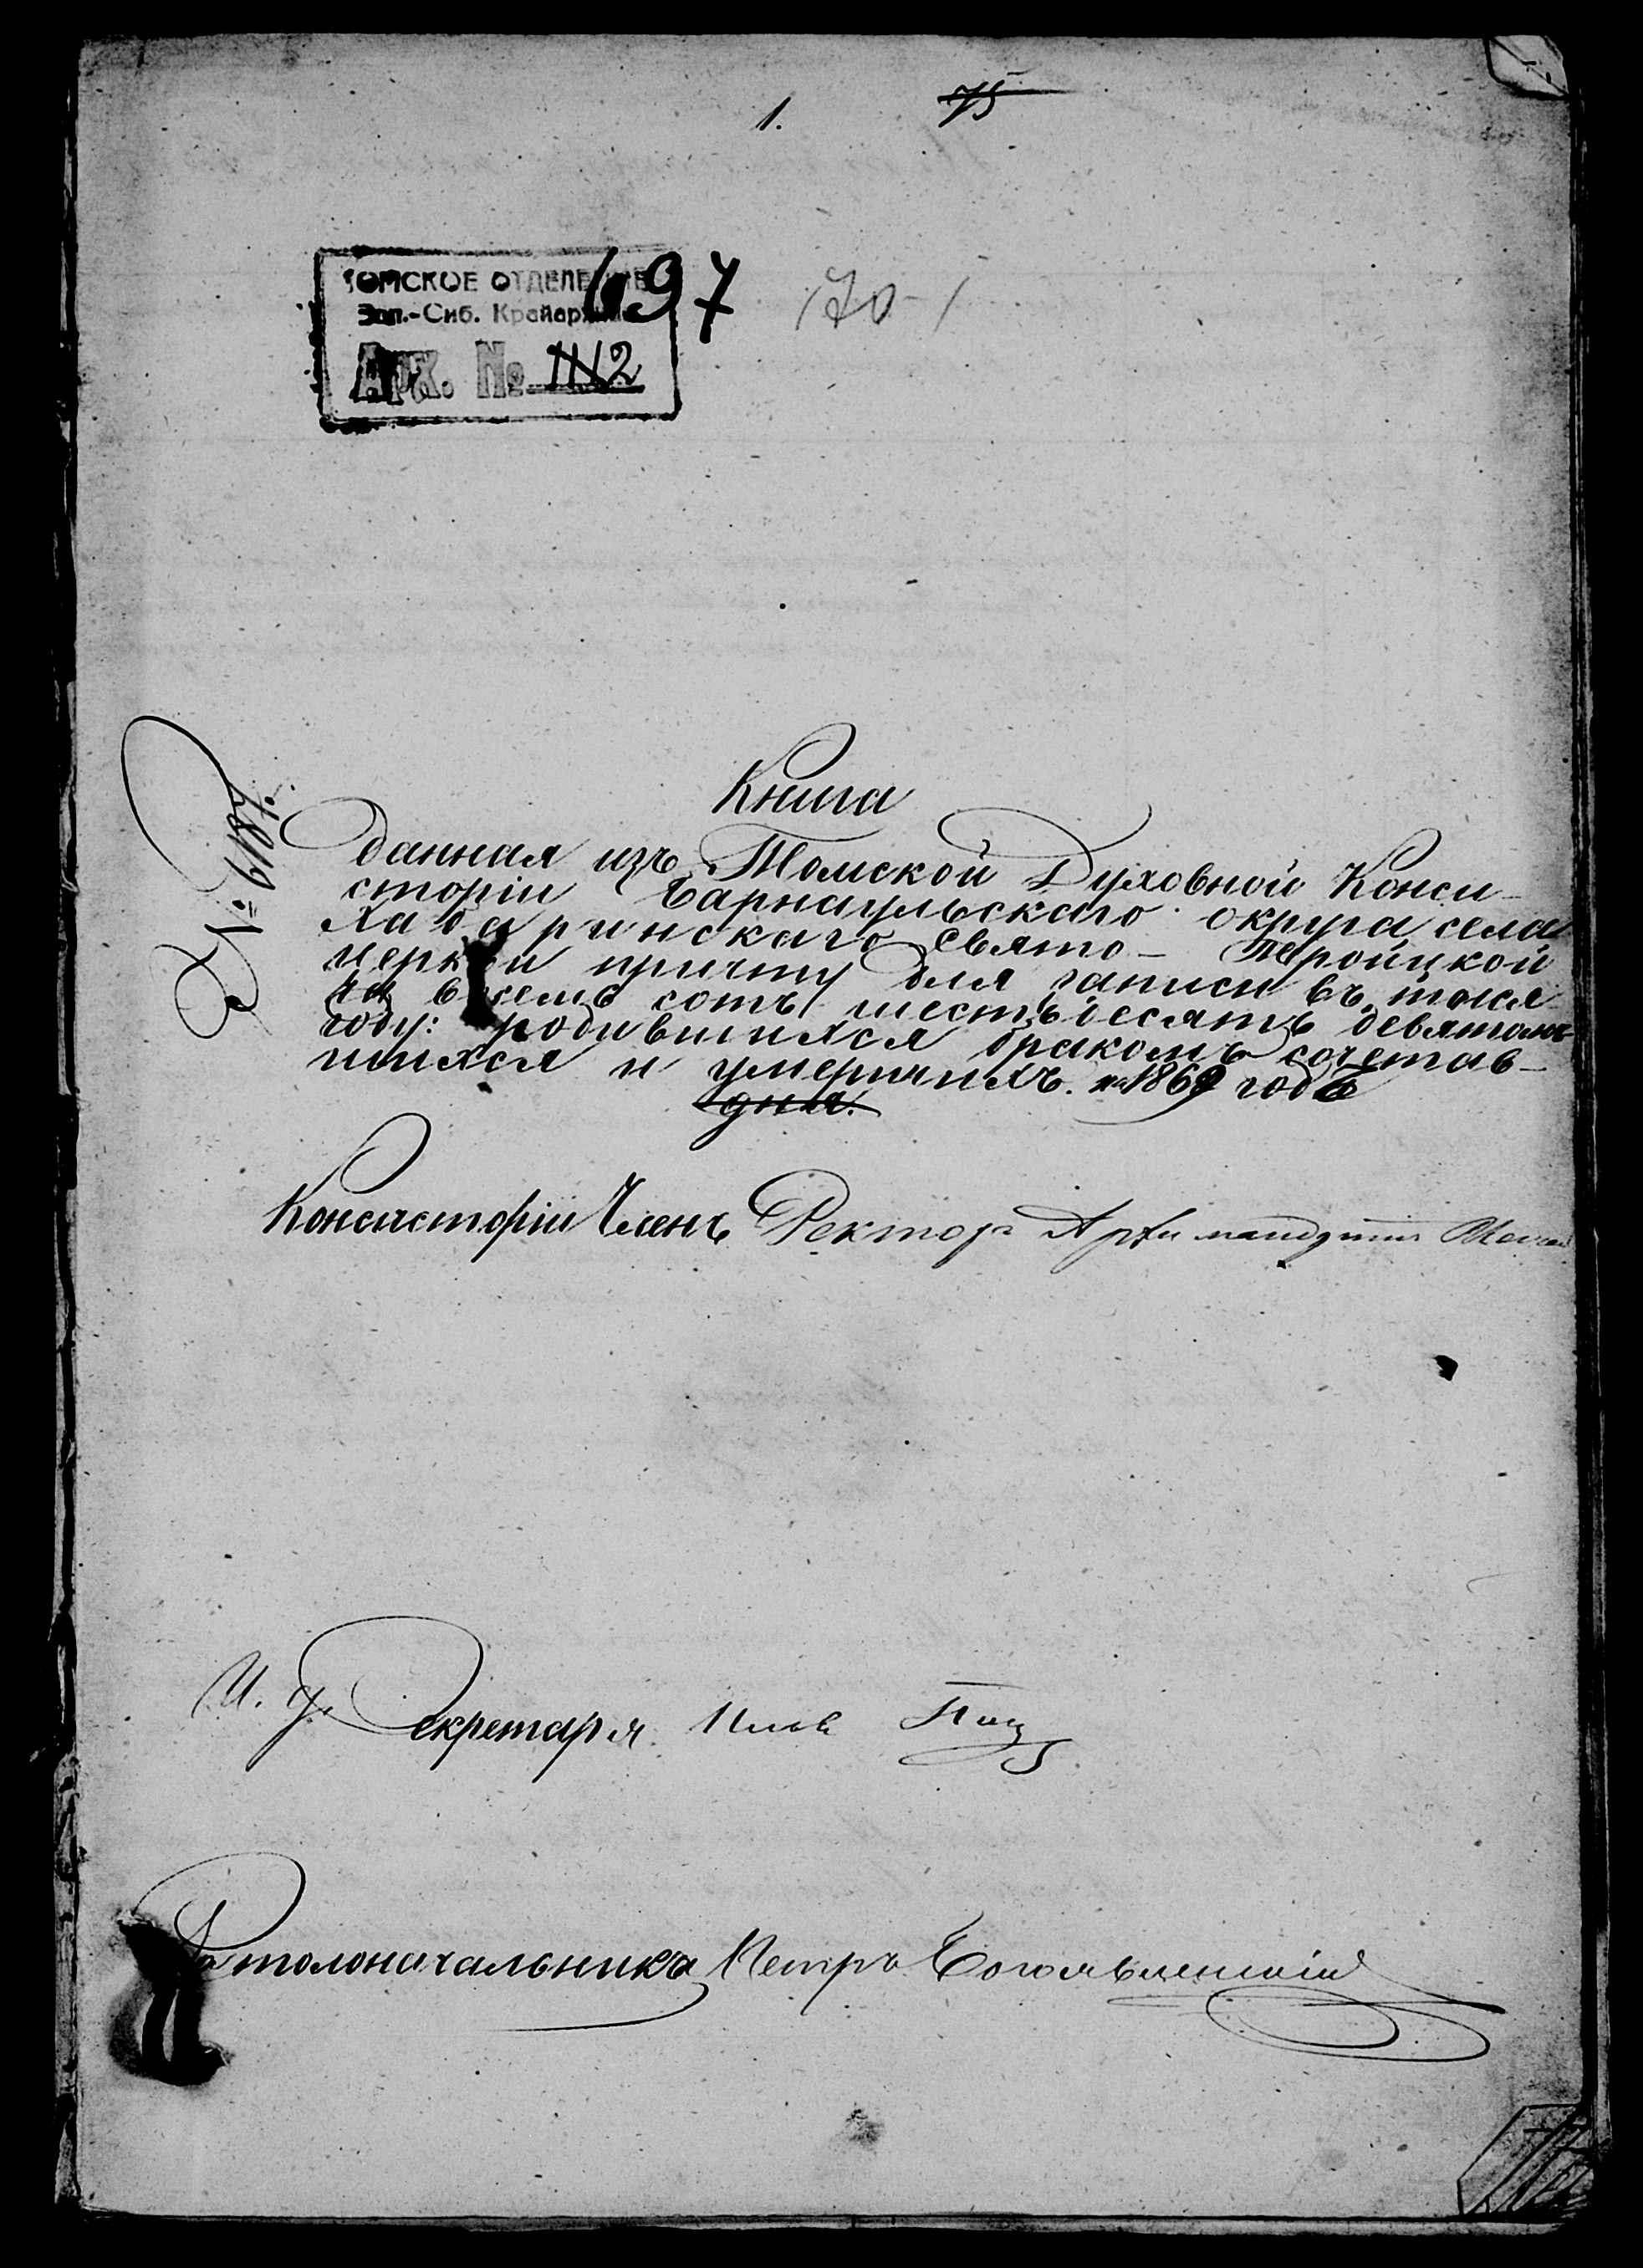 1. 75
ТОМСКОЕ ОТДЕЛЕНИЕ
697
Зап.-Сиб. Крайархива
Арх. № 1112
Книга
данная изъ Томской Духовной Конси-
сторіи Барнаульскаго округа села
Хабаринскаго Свято-Троицкой
церкви причту для записи въ тыся
ча восемь сотъ шестьдесятъ девятомъ
году: родившихся бракомъ сочетав-
шихся и умершихъ. на 1869 годъ
дня.
Консисторіи Членъ Ректоръ Архимандритъ
И. д. Секретаря
Столоначальникъ Петръ Богоявленскій